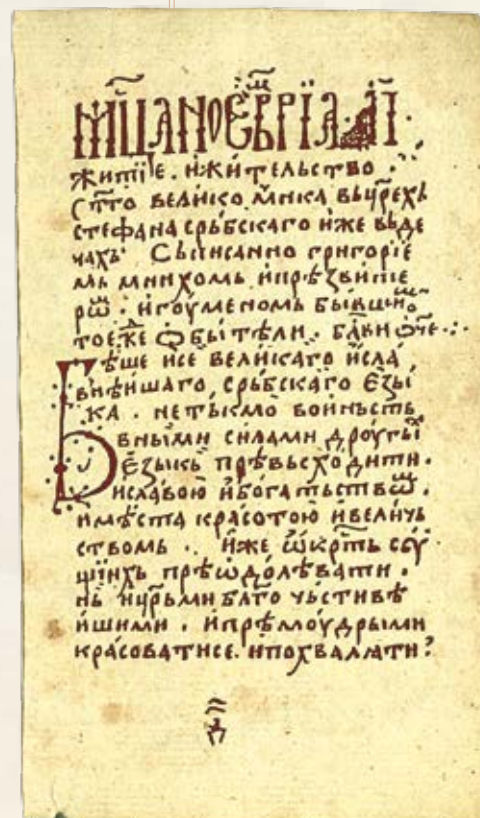 мⷭ҇ца ноеврїа аі҃
житїе. и жительство
ст҃го великомⷱ҇нка въ цр҃ехь
стефана срьбскаго иже вь де
чахь. Сьписанно григорїе
мь мнихомь и прѣзвитїе
рѡⷨ. игоуменомь бывши
тоеⷤже ѻбытѣли. бл҃ви ѻч҃е.
Бѣше и се великаго и сла
внѣишаго срьбскаго єзы
ка. не тькмо воиньстъ
вными силами дроугы
єзыкь прѣвьсходити.
и славою и богатьствѡⷨ.
и мѣста красотою и величь
ствомь. иже ѡкрⷭ҇ть соу
щїихь прѣѡдолѣвати.
нь и цр҃ьми бл҃гочьстивѣ
ишими. и прѣмоудрыми
красоватисе. и похвалати